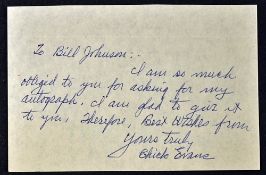 To Bill Johnson:-
I am so much
obliged to you for asking for my
autograph. I am glad to give it
to you, Therefore, Best Wishes from
Yours truly
Chick Evans